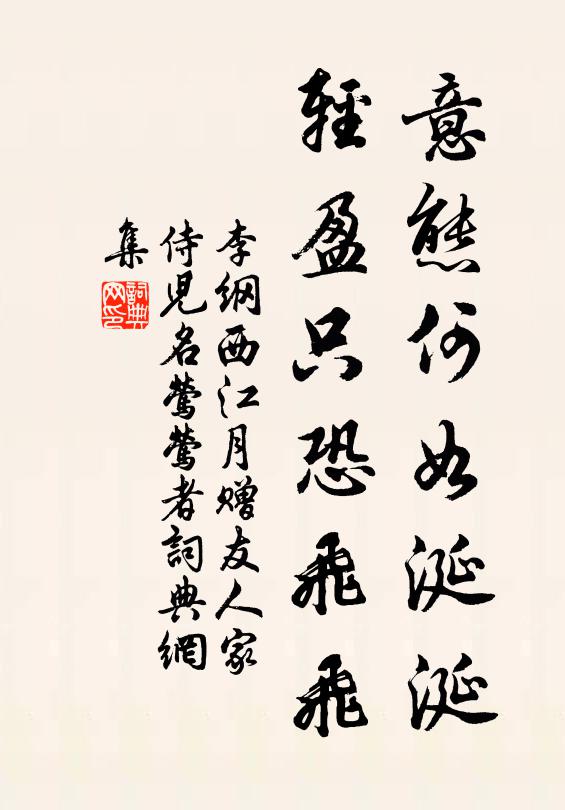 意態何如涎涎
輕盈只恐飛飛
李綱西江月贈友人家
侍兒名鶯鶯者詞典網
集
詞典
网印